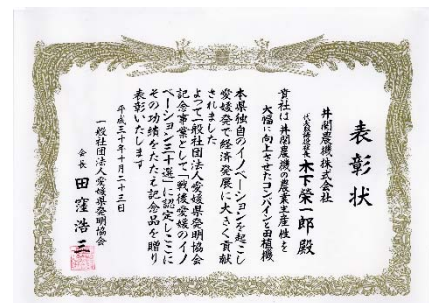 表彰状
井関農機株式会社
代表取締役社長 木下榮一郎 殿
貴社は 井関農機の農業生産性を
大幅に向上させたコンバインと田植機
本県独自のイノベーションを起こし
愛媛発で経済発展に大きく貢献
されました
よって一般社団法人愛媛県発明協会
記念事業として「戦後愛媛のイノ
ベーション三十選」に認定しここに
その功績をたたえ記念品を贈り
表彰いたします
平成三十年十月二十三日
一般社団法人愛媛県発明協会
会長 田窪浩三